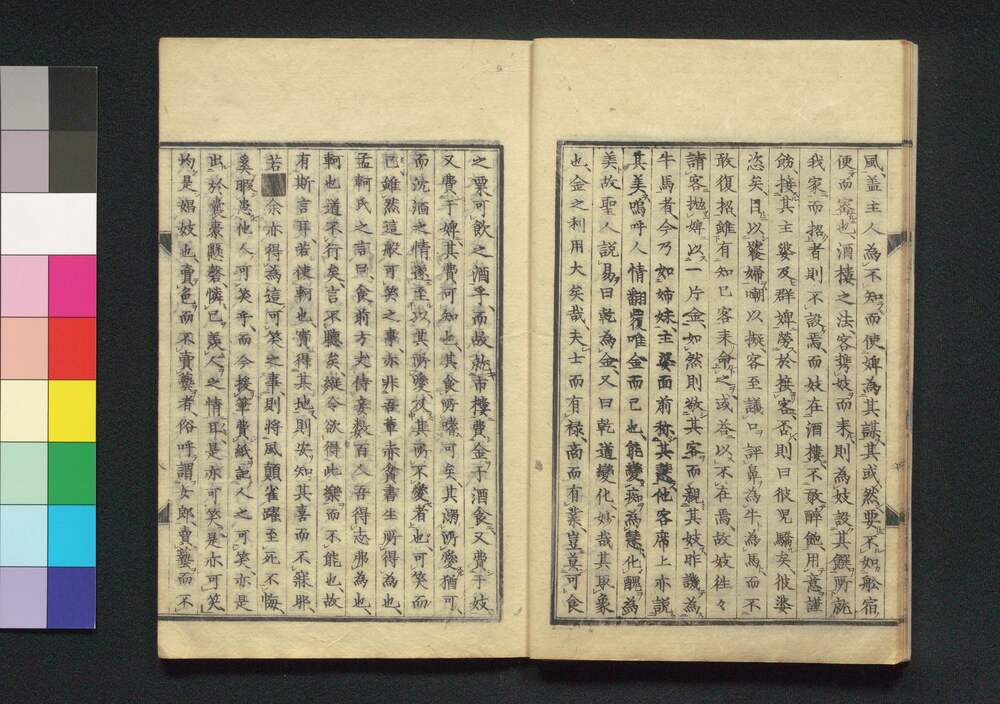 風、蓋主人為不知、而使婢為其謀、其或然、要不如船宿
便、而密也、酒樓之法、客携妓而来、則為妓設其饌、所
我家而招者、則不設焉、而妓在酒樓、不敢醉飽、用意謹
飭、接其主婆及群婢、勞於接客、否則曰彼児驕矣、彼婆
恣矣、目以饕婦、嘲以擬客、至議口評鼻、為牛為馬、而不
敢復招、雖有知己客来命之、或答以不在焉、故妓往々
請客拋婢以一片金、如然則敬其客、而親其妓、昨譏為
牛馬者、今乃如姉妹、主婆面前称其慧、他客席上亦説
其美、嗚呼人情翻覆唯金而已也、能變痴為慧、化醜為
美、故聖人説易曰、乾為金、又曰乾道變化、妙哉其取象
也、金之利用大矣哉、夫士而有禄、商而有業、豈莫可食
之粟可飲之酒乎、而故就市樓、費金于酒食、又費于妓
又費于婢、其費可知也、其食所嗜可矣、其溺所愛猶可、
而沈湎之情遂至以其所愛、及其所不愛者、也可笑而
已、雖然這般可笑之事、亦非吾輩赤貧書生所得為也、
孟軻氏之言曰、食前方丈侍妾数百人、吾得志弗為也、
軻也道不行矣、言不聽矣、縦令欲得此樂、而不能也、故
有斯言耳、若使軻也實得其地、則安知其喜而不寐耶、
若 余亦得為這可笑之事、則将風顛雀躍至死不悔、
奚暇患他人可笑乎、而今援筆費紙、記人之可笑、亦是
出於嚢槖懸磬憐已羨人之情耳、是亦可笑、是亦可笑、
均是娼妓也、賣色而不賣藝者、俗呼謂女郎、賣藝而不